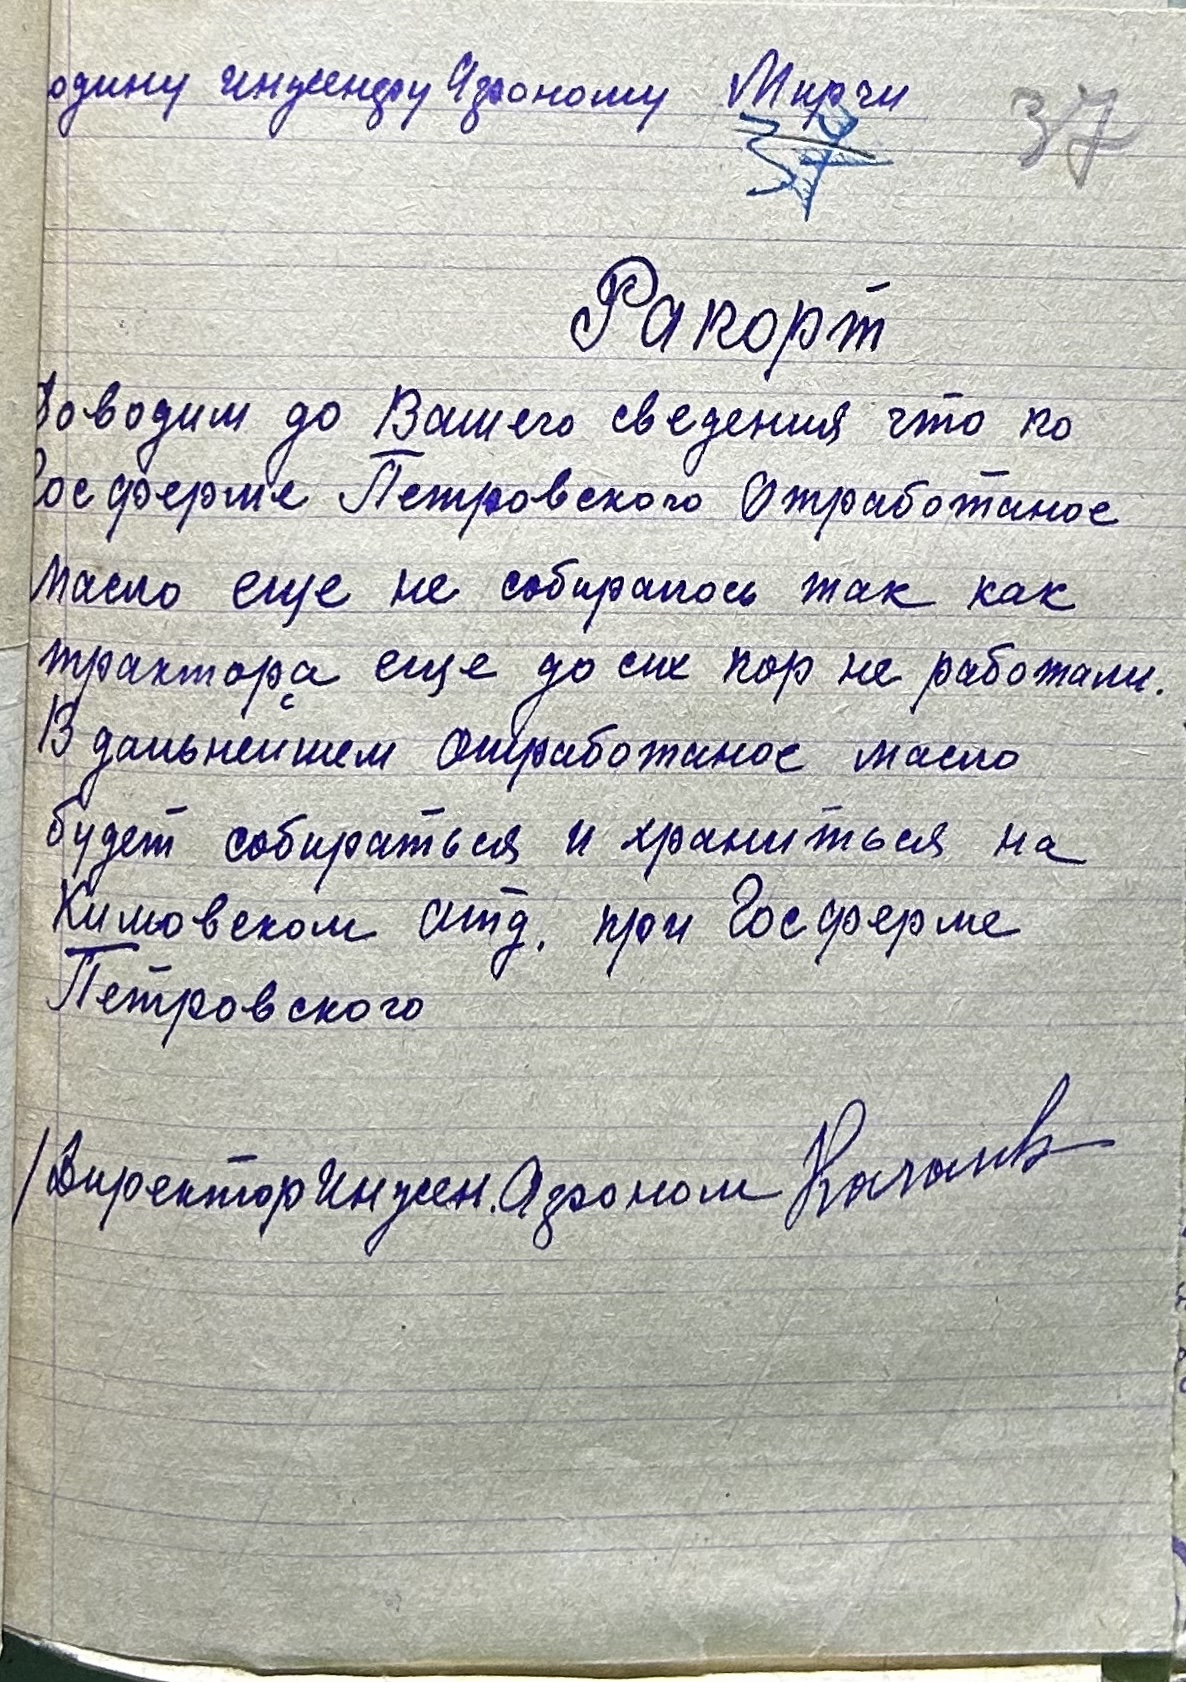 одину инженеру Агроному Мирчи
37
Рапорт
Доводим до Вашего сведения что по
Госферме Петровского Отработаное
масло еще не собиралось так как
трактора еще до сих пор не работали.
В дальнейшем отработаное масло
будет собираться и храниться на
Кимовском отд. при Госферме
Петровского
/Директор Инжен. Агроном